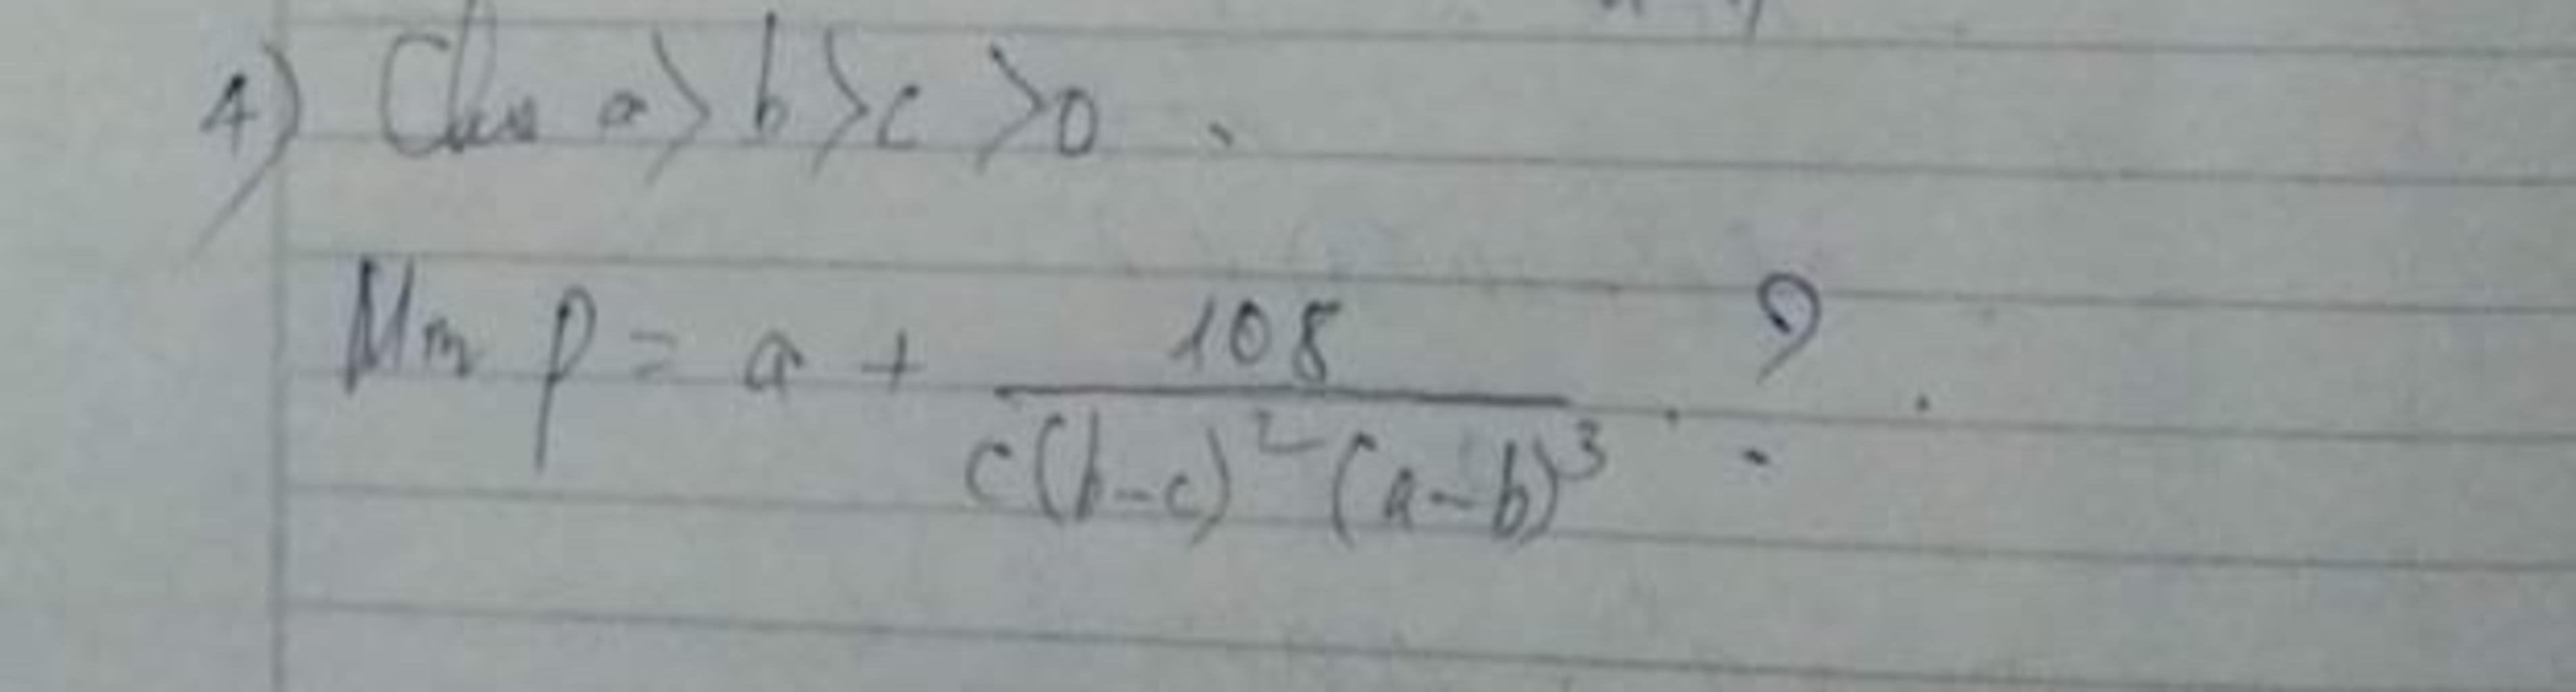 4) Cho a > b > c > 0 .
Min P = a + 108 / c(b-c)²(a-b)³ . ?